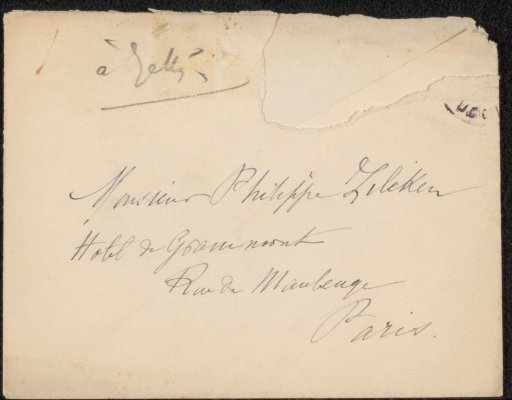 à
Monsieur Philippe Zilcken
Hotel de Grammont
Rue de Maubeuge
Paris.